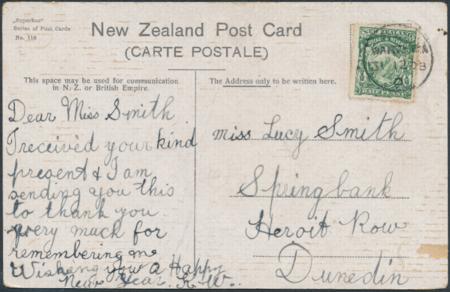 "Superior"
Series of Post Cards
No. 118
New Zealand Post Card
(CARTE POSTALE)
This space may be used for communication
in N.Z. or British Empire.
The Address only to be written here.
Dear Miss Smith
I received your kind
present & I am
sending you this
to thank you
very much for
remembering me
Wishing you a Happy
New Year. K.W.
Miss Lucy Smith
Springbank
Heroit Row
Dunedin
NEW ZEALAND
HALFPENNY